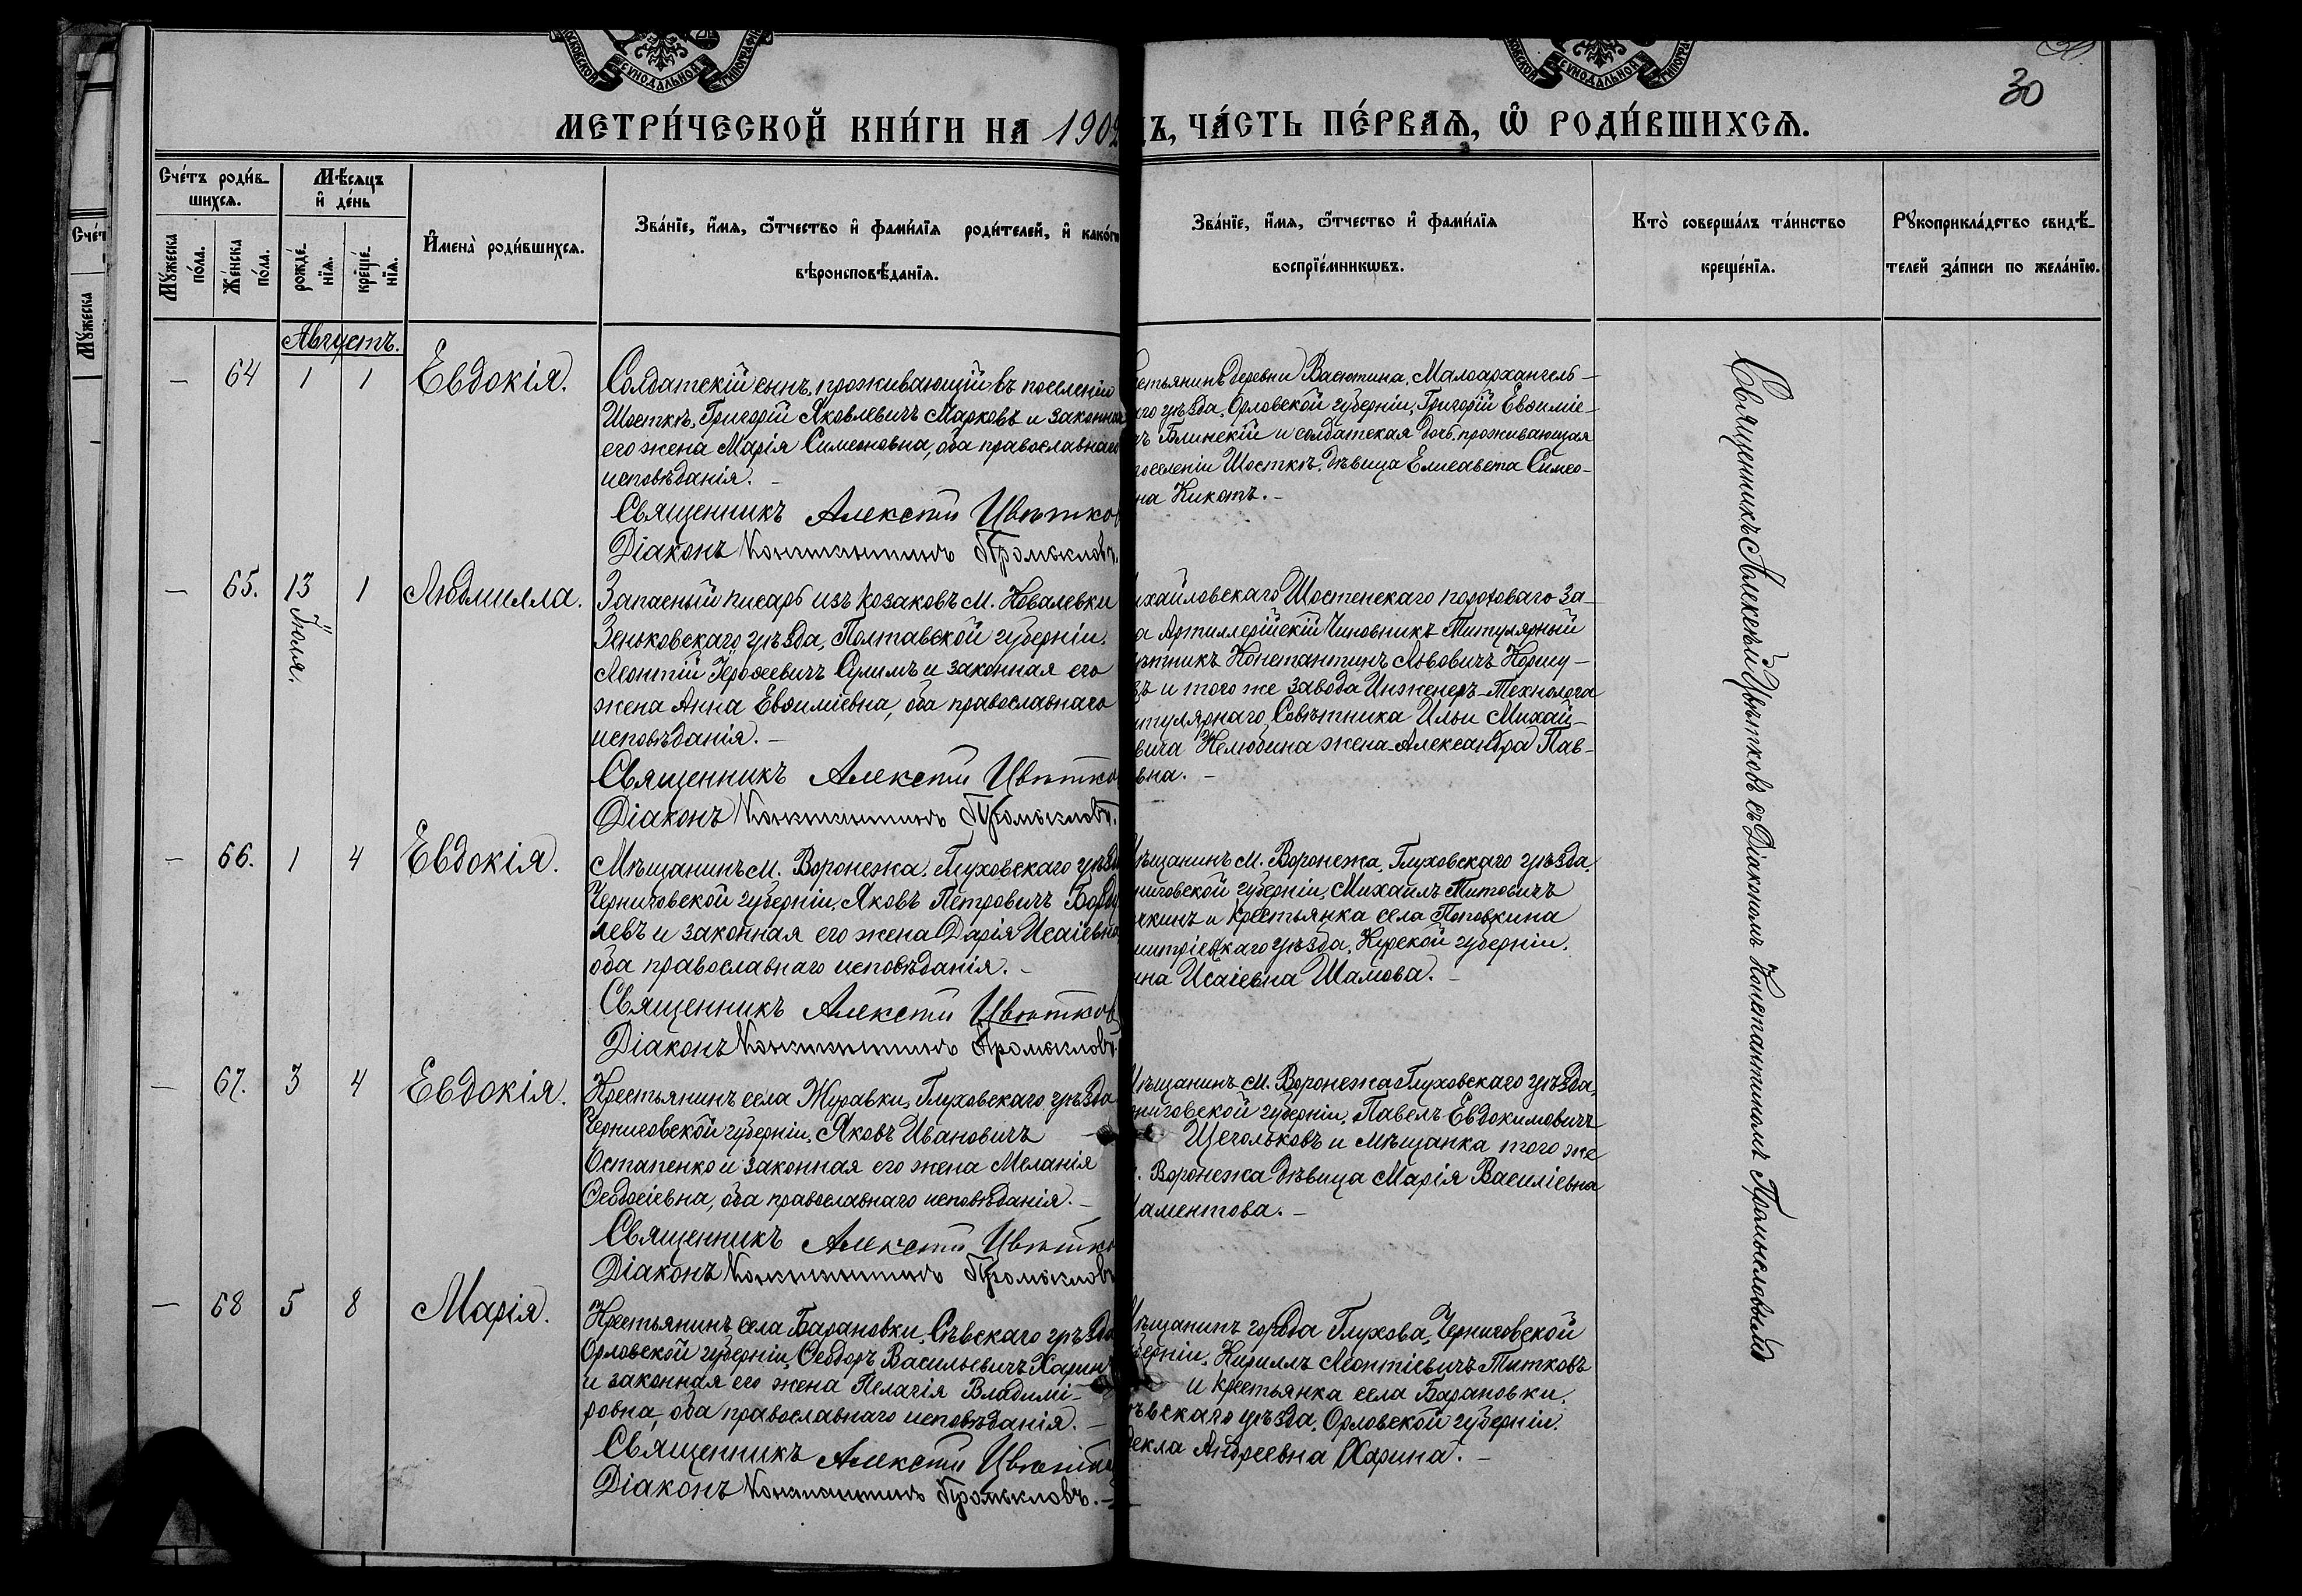 МОСКОВСКОЙ СУНОДАЛЬНОЙ ТИПОГРАФІ
СКОВСКОЙ СУНОДАЛЬНОЙ ТИПОГРАФІ
30
МЕТРИ́ЧЕСКОЙ КНИ́ГИ НА 1902
Ъ, ЧА́СТЬ ПЕ́РВАѦ, Ѡ҆ РОДИ́ВШИХСѦ.
Счéтъ роди́в-
шихсѧ.
Мѣ́сѧцъ
и҆ де́нь
Мꙋ́жеска
по́ла.
Же́нска
по́ла.
рожде́-
нїѧ.
креще́-
нїѧ.
И҆мена̀ роди́вшихсѧ.
Зва́нїе, и҆́мѧ, ѻ҆́тчество и҆ фами́лїѧ роди́телей, и҆ како́гѡ
вѣроисповѣ́данїѧ.
Зва́нїе, и҆́мѧ, ѻ҆́тчество и҆ фами́лїѧ
воспрїе́мникѡвъ.
Кто̀ соверша́лъ та́инство
креще́нїѧ.
Рꙋкоприкла́дство свидѣ́-
телей за́писи по жела́нїю.
Счéт
Мꙋ́жеска
Августъ.
— 64 1 1 Евдокія.
Солдатскій сынъ, проживающій въ поселеніи
Шосткѣ, Григорій Яковлевичъ Марковъ и законная
его жена Марія Симеоновна, оба православнаго
исповѣданія. —
Священникъ Алексѣй Цвѣтков
Діаконъ Константинъ Промысловъ.
естьянинъ деревни Васютина, Малоархангель-
го уѣзда, Орловской губерніи, Григорій Евѳиміе-
чъ Блинскій и солдатская дочь, проживающая
поселеніи Шосткѣ, дѣвица Елисавета Симео-
на Кикоть. —
— 65. 13 Іюля. 1 Людмилла.
Запасный писарь изъ козаковъ м. Ковалевки
Зеньковскаго уѣзда, Полтавской губерніи,
Леонтій Іероѳеевичъ Сулимъ и законная его
жена Анна Евѳиміевна, оба православнаго
исповѣданія. —
Священникъ Алексѣй Цвѣтко
Діаконъ Константинъ Промысловъ.
ихайловскаго Шостенскаго пороховаго За-
а Артиллерійскій Чиновникъ Титулярный
ѣтникъ Константинъ Львовичъ Коршу-
въ и того же завода Инженеръ-Технолога
тулярнаго Совѣтника Ильи Михай-
вича Нелюбина жена Александра Пав-
вна. —
— 66. 1 4 Евдокія.
Мѣщанинъ м. Воронежа, Глуховскаго уѣзд
Черниговской губерніи, Яковъ Петровичъ
левъ и законная его жена Дарія Исаіевна
оба православнаго исповѣданія. —
Священникъ Алексѣй Цвѣтков
Діаконъ Константинъ Промысловъ.
ѣщанинъ м. Воронежа, Глуховскаго уѣзда,
ниговской губерніи, Михаилъ Титовичъ
чкинъ и крестьянка села Поповкина
митріевскаго уѣзда, Курской губерніи,
нна Исаіевна Шамова. —
— 67. 3 4 Евдокія.
Крестьянинъ села Журавки, Глуховскаго уѣзда
Черниговской губерніи, Яковъ Ивановичъ —
Остапенко и законная его жена Меланія
Ѳеодосіевна, оба православнаго исповѣданія. —
Священникъ Алексѣй Цвѣтко
Діаконъ Константинъ Промысловъ
ѣщанинъ м. Воронежа Глуховскаго уѣзда,
ниговской губерніи, Павелъ Евдокимовичъ
Щегольковъ и мѣщанка того же
. Воронежа дѣвица Марія Василіевна
аментова. —
— 68 5 8 Марія.
Крестьянинъ села Барановки, Сѣвскаго уѣзда
Орловской губерніи, Ѳеодоръ Васильевичъ Харин
и законная его жена Пелагія Владимі-
ровна, оба православнаго исповѣданія. —
Священникъ Алексѣй Цвѣтк
Діаконъ Константинъ Промысловъ. —
ѣщанинъ города Глухова, Черниговской
берніи, Кириллъ Леонтіевичъ Титковъ
и крестьянка села Барановки,
ѣвскаго уѣзда, Орловской губерніи,
екла Андреевна Харина. —
Священникъ Алексѣй Цвѣтковъ съ Діакономъ Константиномъ Промысловымъ